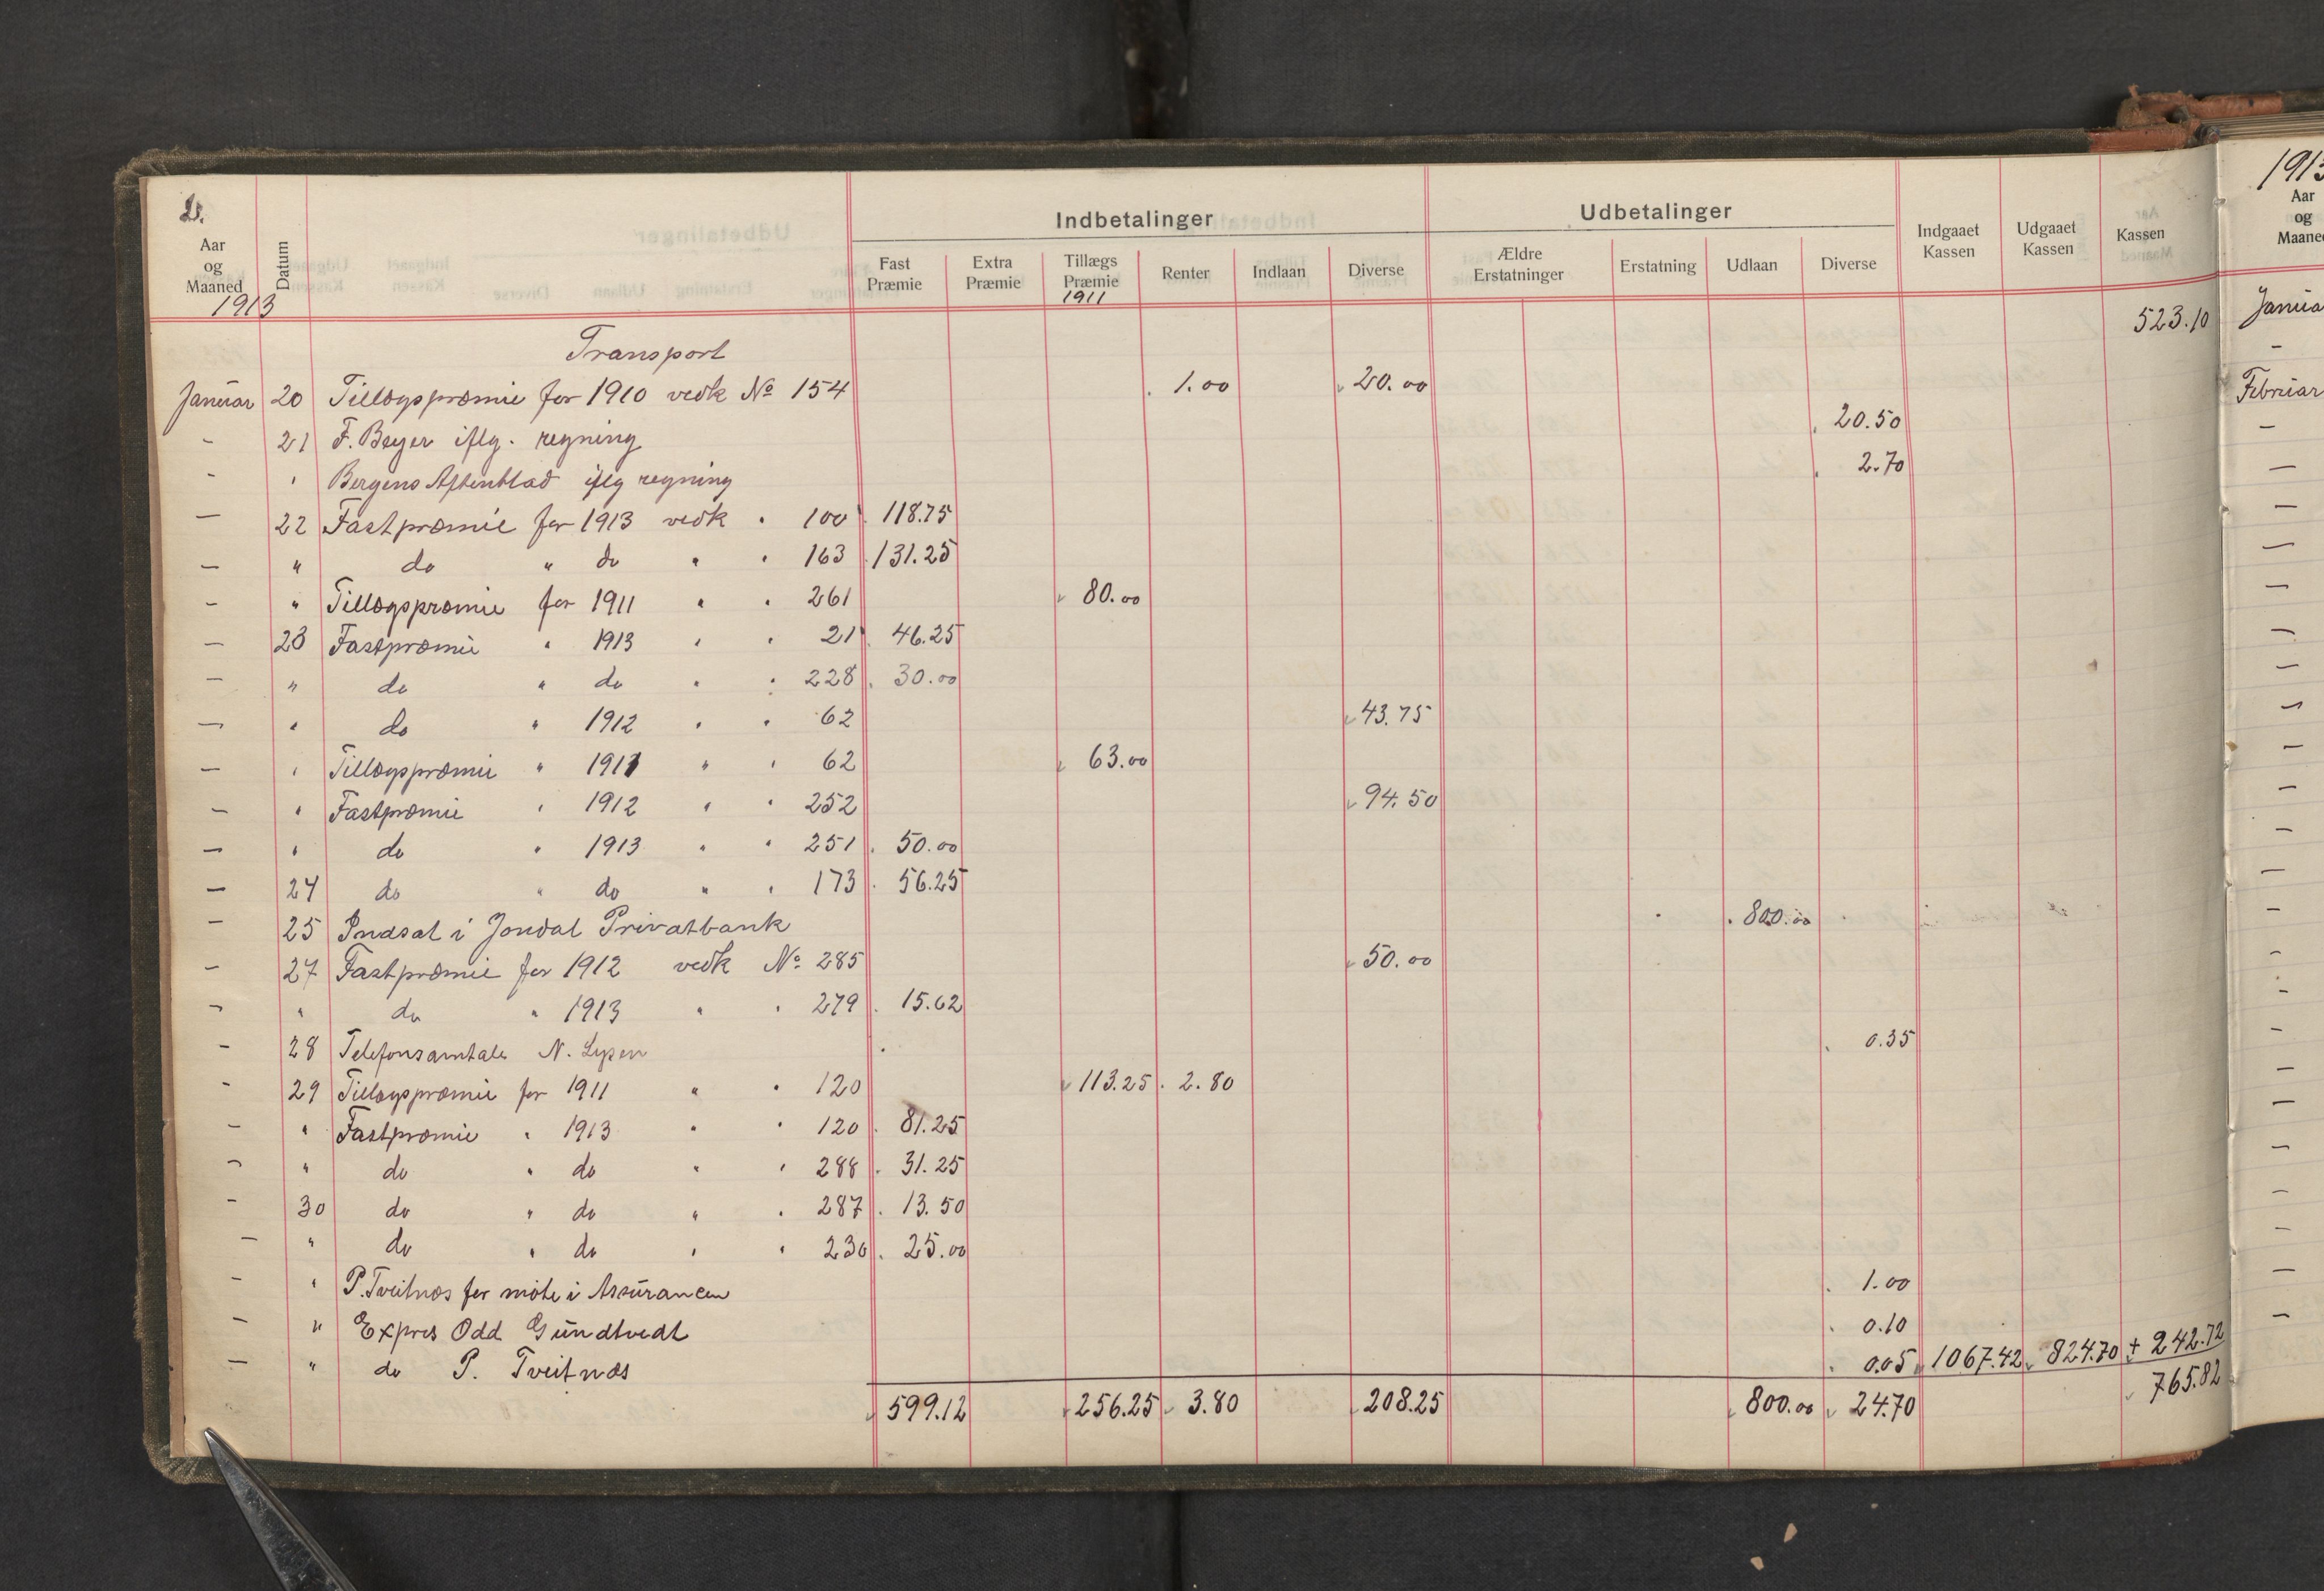 2.
Indbetalinger Udbetalinger
Aar og Maaned Datum Fast Præmie Extra Præmie Tillægs Præmie Renter Indlaan Diverse Ældre Erstatninger Erstatning Udlaan Diverse Indgaaet Kassen Udgaaet Kassen Kassen
1913 1911
Transport 523.10
Januar 20 Tillægspræmie for 1910 vedk No 154 1.00 20.00
- 21 F. Beyer iflg. regning 20.50
- " Bergens Aftenblad iflg regning 2.70
- 22 Fastpræmie for 1913 vedk " 100 118.75
- " do " do " " 163 131.25
- " Tillægspræmie for 1911 " " 261 80.00
- 23 Fastpræmie " 1913 " " 21 46.25
- " do " do " " 228 30.00
- " do " 1912 " " 62 43.75
- " Tillægspræmie " 1911 " " 62 63.00
- " Fastpræmie " 1912 " " 252 94.50
- " do " 1913 " " 251 50.00
- 24 do " do " " 173 56.25
- 25 Indsat i Jondal Privatbank 800.00
- 27 Fastpræmie for 1912 vedk No 285 50.00
- " do " 1913 " " 279 15.62
- 28 Telefonsamtale N. Lysen 0.35
- 29 Tillægspræmie for 1911 " " 120 113.25 2.80
- " Fastpræmie " 1913 " " 120 81.25
- " do " do " " 288 31.25
- 30 do " do " " 287 13.50
- " do " do " " 230 25.00
- " P. Tveitnæs for møte i Assurancen 1.00
- " Expres Odd Gundtvedt 0.10
- " do P. Tveitnæs 0.05 1067.42 824.70 + 242.72
599.12 256.25 3.80 208.25 800.00 24.70 765.82
1913
Aar
og
Januar
-
Februar